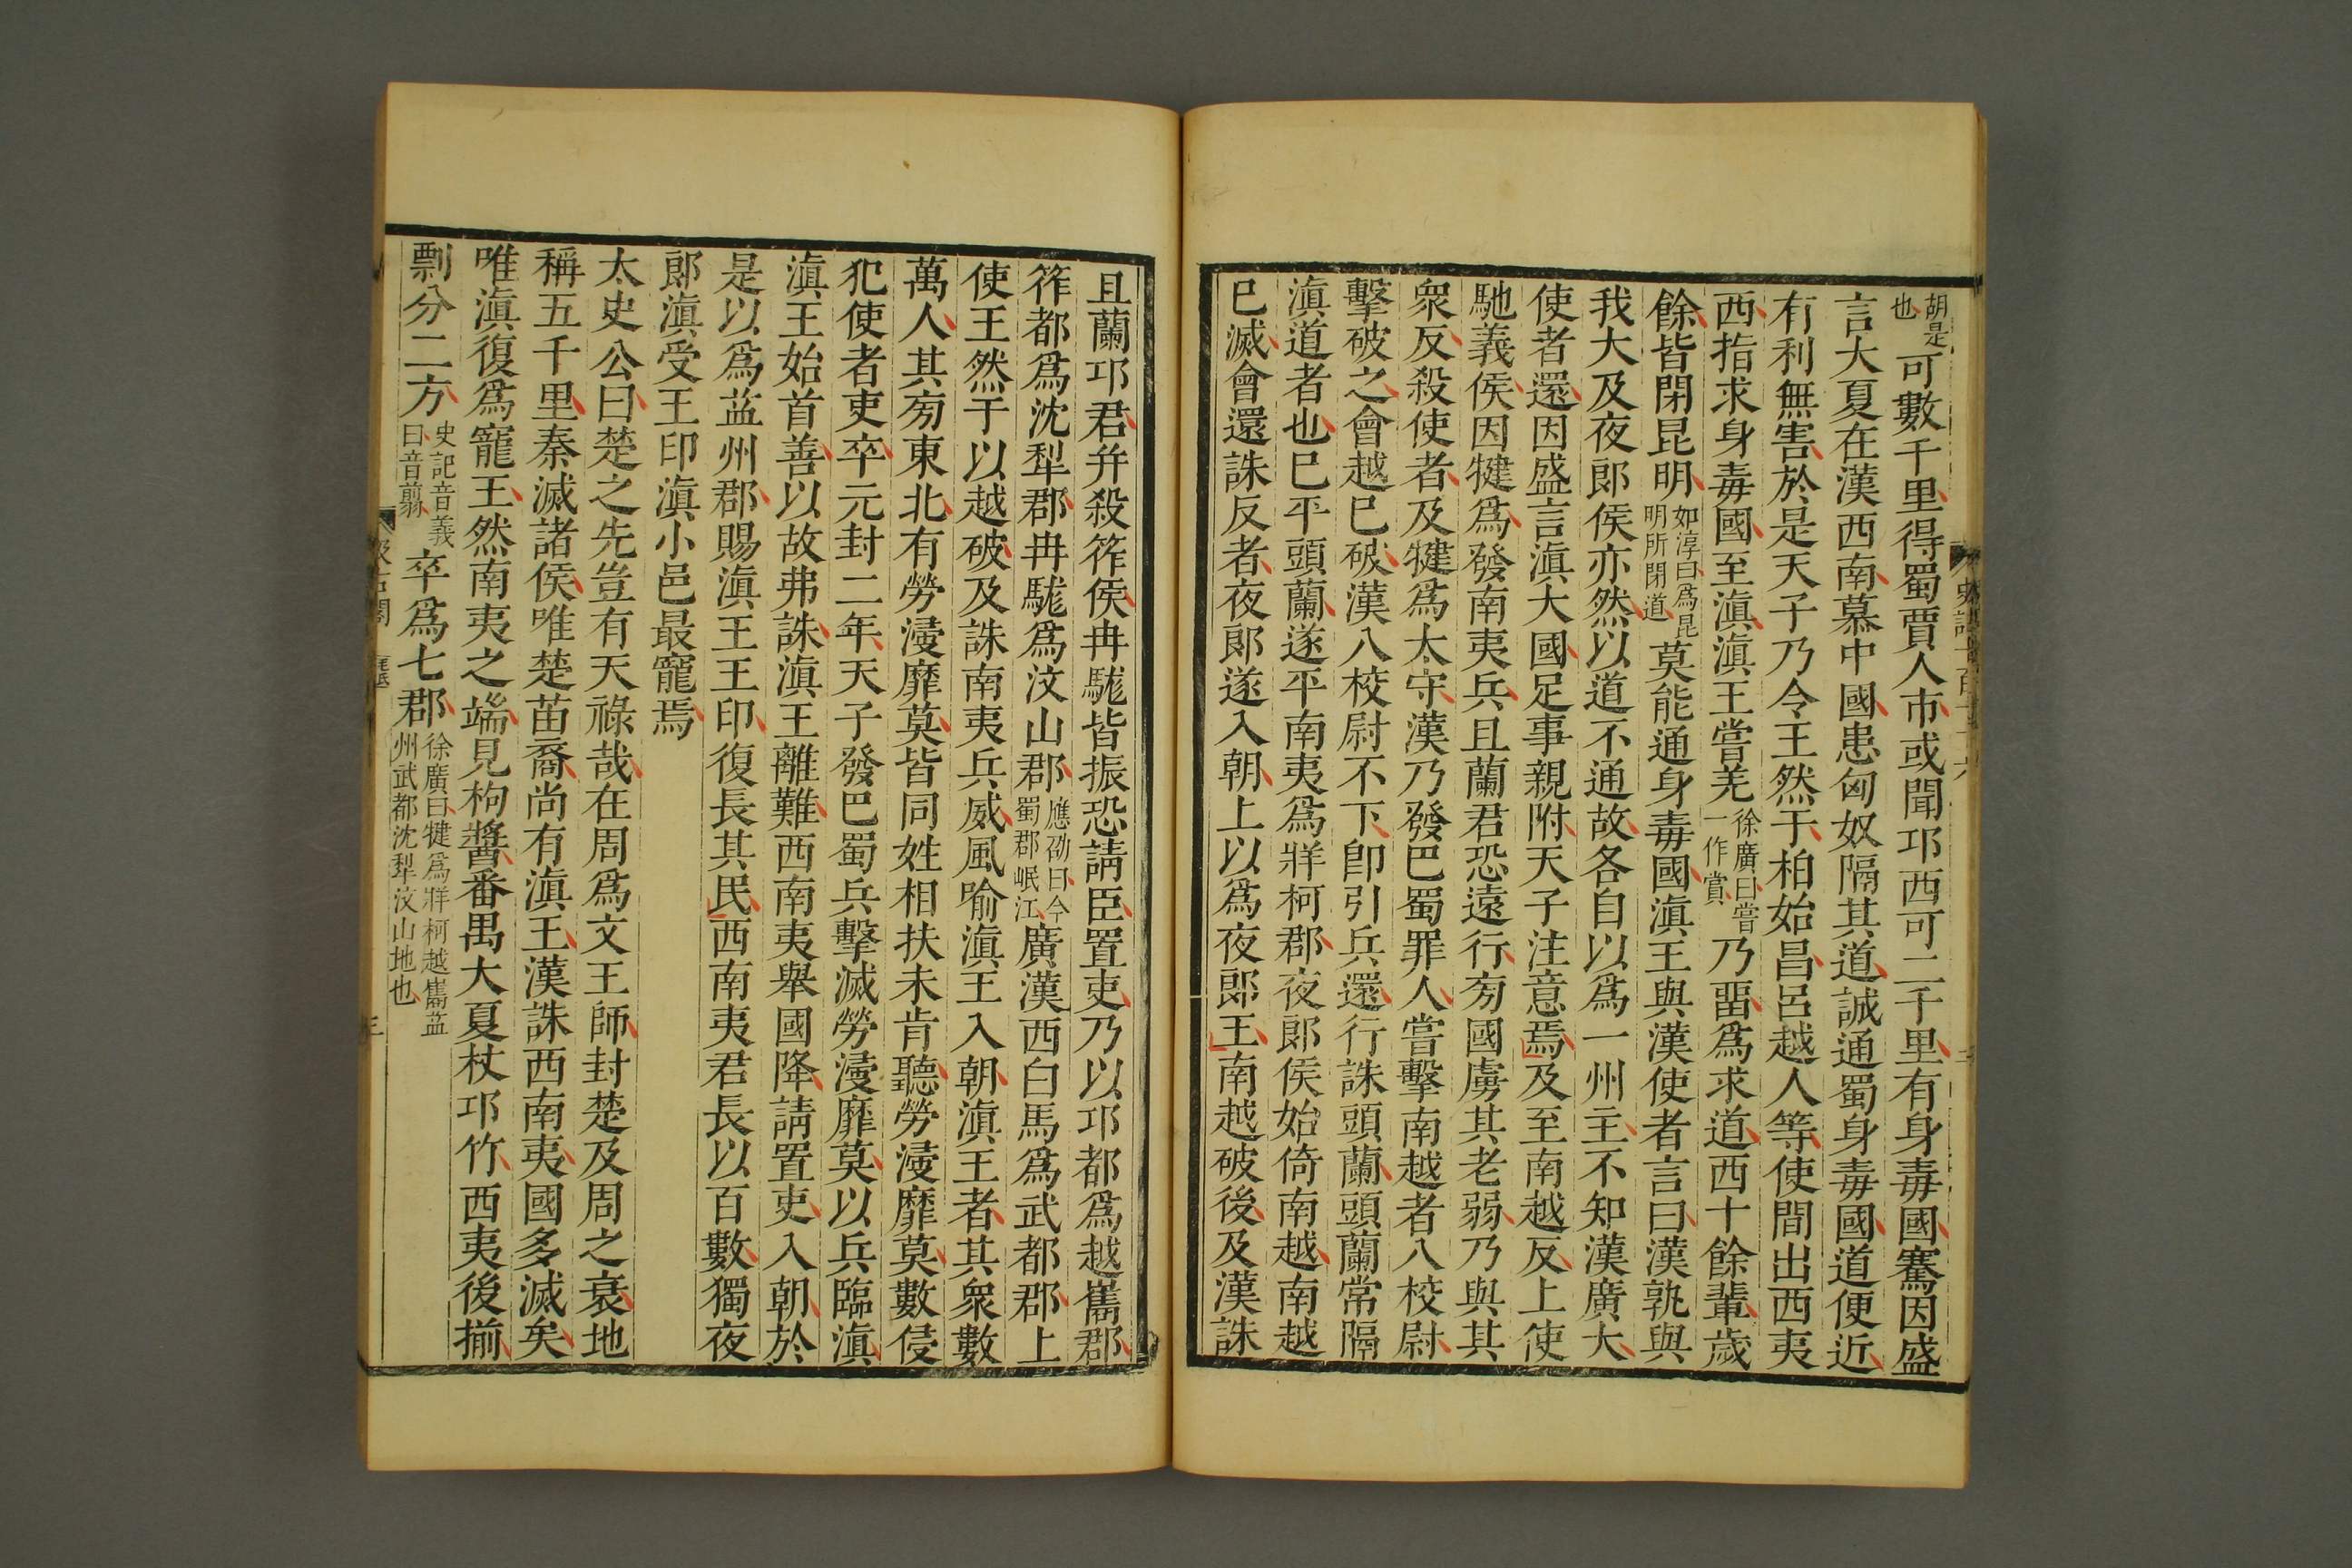 胡是也可數千里得蜀賈人市或聞邛西可二千里有身毒國騫因盛
言大夏在漢西南慕中國患匈奴隔其道誠通蜀身毒國道便近
有利無害於是天子乃令王然于柏始昌呂越人等使閒出西夷
西指求身毒國至滇滇王嘗羌徐廣曰嘗一作賞乃畱爲求道西十餘輩歲
餘皆閉昆明如淳曰爲昆明所閉道莫能通身毒國滇王與漢使者言曰漢孰與
我大及夜郎侯亦然以道不通故各自以爲一州主不知漢廣大
使者還因盛言滇大國足事親附天子注意焉及至南越反上使
馳義侯因犍爲發南夷兵且蘭君恐遠行旁國虜其老弱乃與其
衆反殺使者及犍爲太守漢乃發巴蜀罪人嘗擊南越者八校尉
擊破之會越已破漢八校尉不下卽引兵還行誅頭蘭頭蘭常隔
滇道者也已平頭蘭遂平南夷爲牂柯郡夜郎侯始倚南越南越
已滅會還誅反者夜郎遂入朝上以爲夜郎王南越破後及漢誅
且蘭邛君幷殺筰侯冉駹皆振恐請臣置吏乃以邛都爲越巂郡
筰都爲沈犁郡冉駹爲汶山郡應劭曰今蜀郡岷江廣漢西白馬爲武都郡上
使王然于以越破及誅南夷兵威風喻滇王入朝滇王者其衆數
萬人其旁東北有勞漫靡莫皆同姓相扶未肯聽勞漫靡莫數侵
犯使者吏卒元封二年天子發巴蜀兵擊滅勞漫靡莫以兵臨滇
滇王始首善以故弗誅滇王離難西南夷舉國降請置吏入朝於
是以爲益州郡賜滇王王印復長其民西南夷君長以百數獨夜
郎滇受王印滇小邑最寵焉
太史公曰楚之先豈有天祿哉在周爲文王師封楚及周之衰地
稱五千里秦滅諸侯唯楚苗裔尚有滇王漢誅西南夷國多滅矣
唯滇復爲寵王然南夷之端見枸醬番禺大夏杖邛竹西夷後揃
剽分二方史記音義曰音翦卒爲七郡徐廣曰犍爲牂柯越巂益州武都沈犁汶山地也